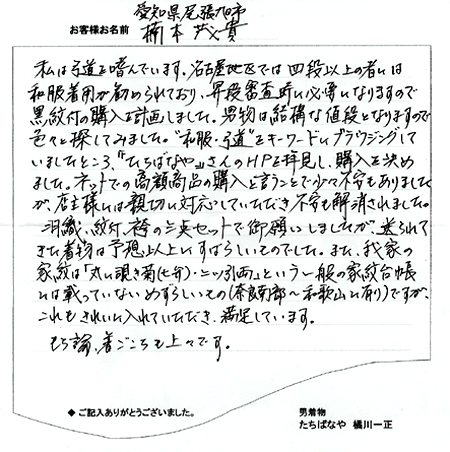 愛知県尾張旭市
お客様お名前 楠本 茂貴
私は弓道を嗜んでいます。名古屋地区では四段以上の者には
和服着用が勧められており、昇段審査時に必要になりますので
黒紋付の購入を計画しました。男物は結構な値段となりますので
色々と探してみました。"和服・弓道"をキーワードにブラウジングして
いましたところ、「たちばなや」さんのHPを拝見し、購入を決め
ました。ネットでの高額商品の購入と言うことで少々不安もありました
が、店主様には親切に対応していただき不安も解消されました。
羽織、紋付、袴の三点セットで御願いしましたが、送られて
きた着物は予想以上にすばらしいものでした。また、我家の
家紋は「丸に覗き菊(七弁)・二ツ引両」という一般の家紋台帳
には載っていないめずらしいもの(奈良南部～和歌山に有り)ですが、
これもきれいに入れていただき、満足しています。
もち論、着ごこちも上々です。
◆ご記入ありがとうございました。
男着物
たちばなや 橘川一正